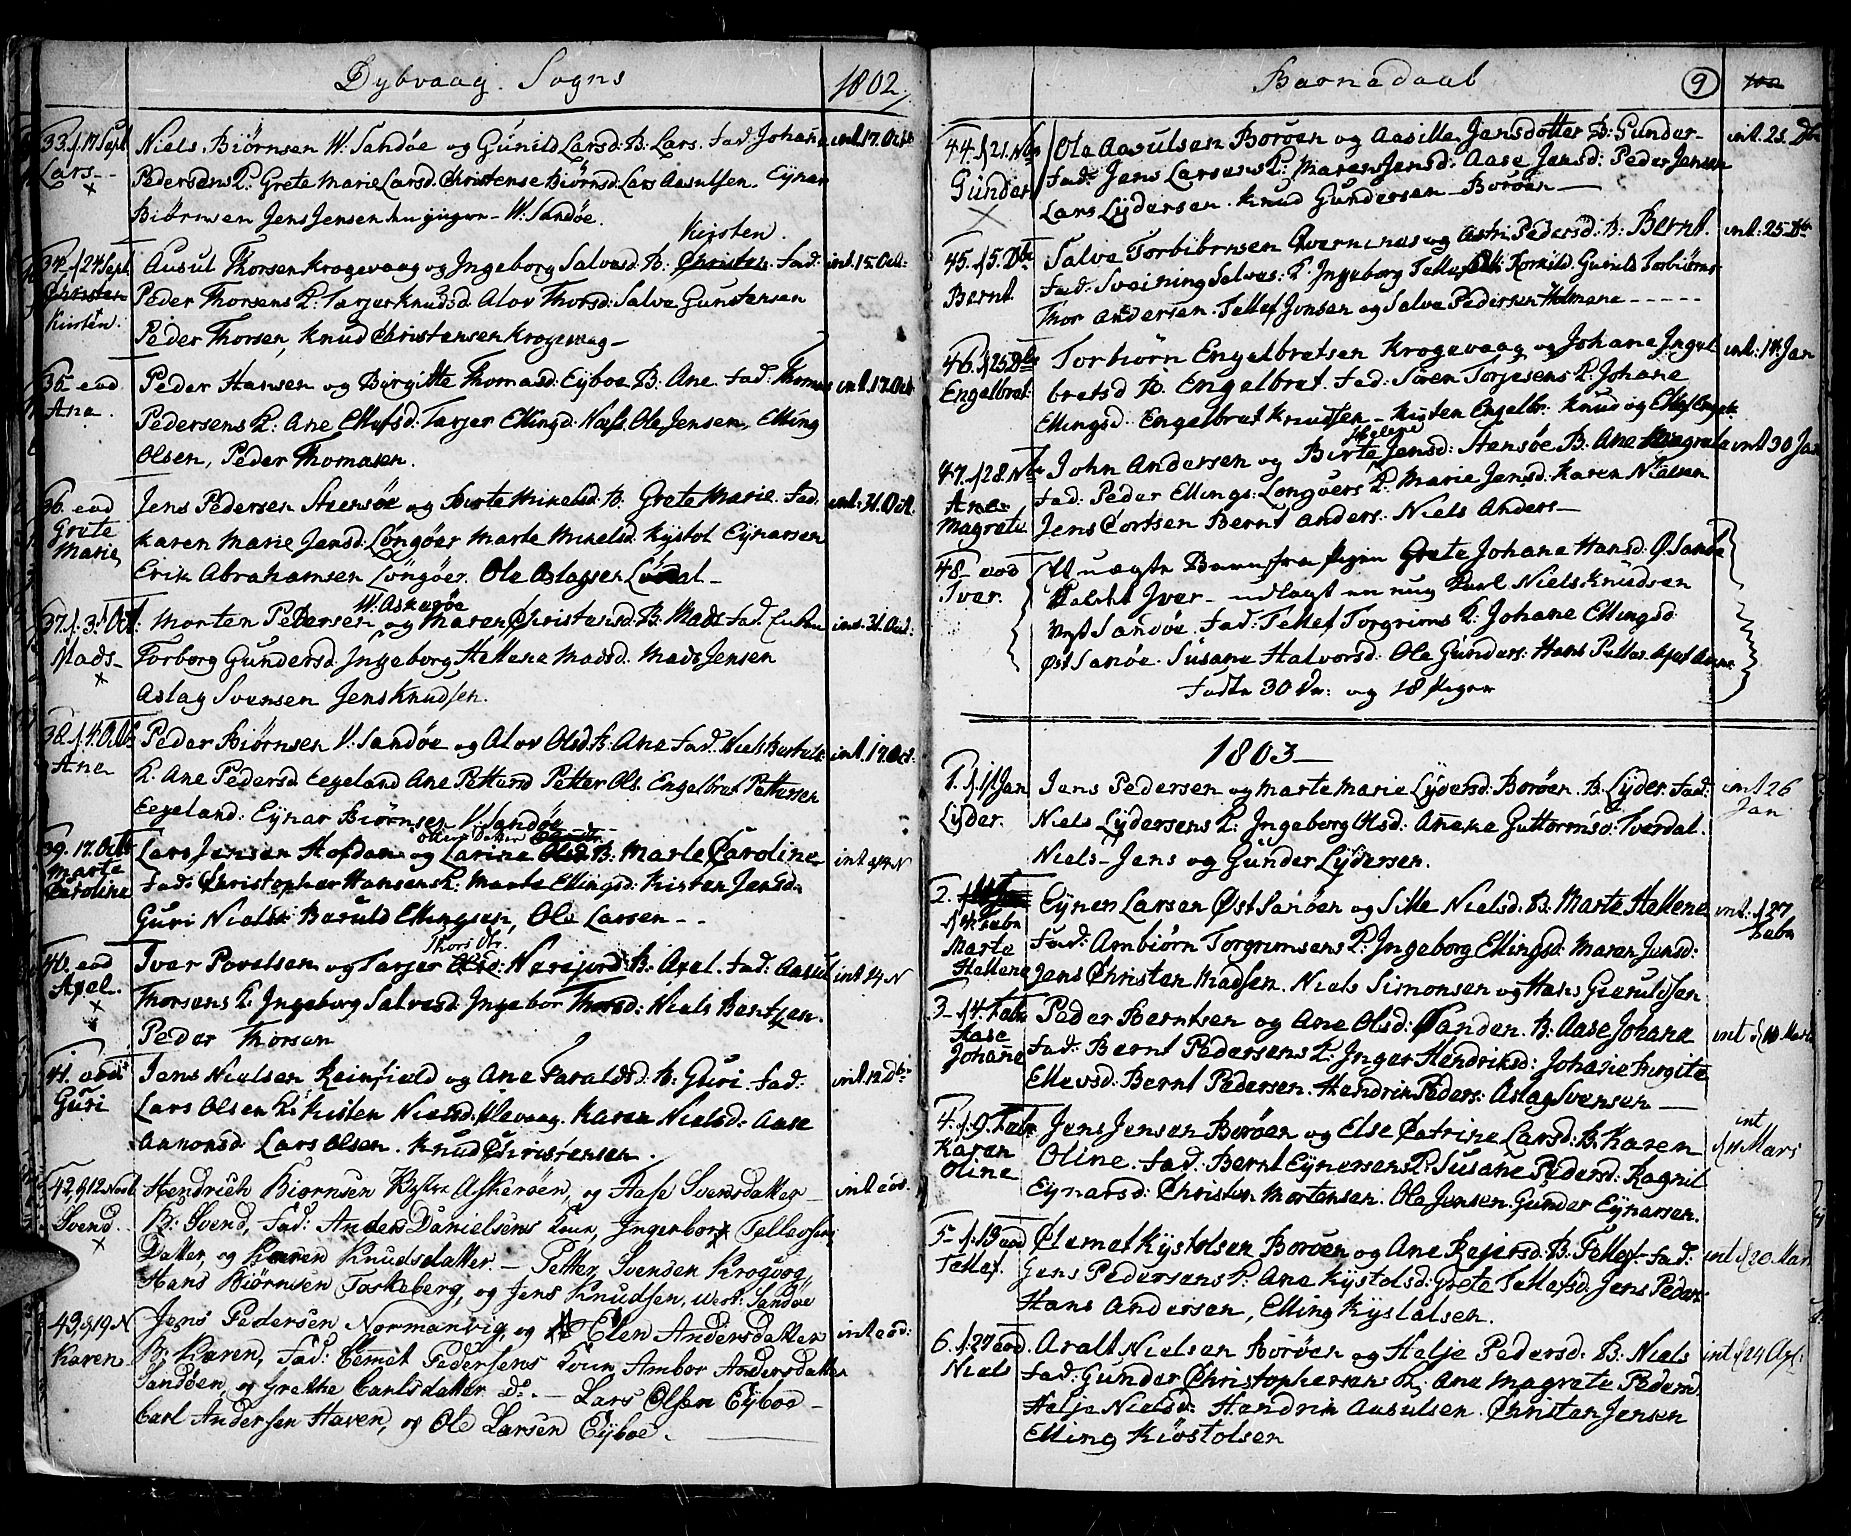 Dybvaag Sogns
1802
33. f 17 Sept
Lars
Niels Biørnsen W. Sandøe og Gunild Larsd: B. Lars. Fad. Johan
Pedersens K: Grete Marie Larsd. Christense Biørnsd: Lars Aasulsen. Eynar
Biørnsen Jens Jensen W. Sandøe.
int 17. Octb
34. f 24 Sept
Kirsten.
Kirsten.
Ausul Thorsen Krogevaag og Ingeborg Salvesd: B. Fad:
Peder Thorsens K: Tarjer Knudsd. Alov Thorsd: Salve Gunstensen
Peder Thorsen, Knud Christensen Krogevaag
int. 15. Oct:
35. eod
Ane.
Peder Hansen og Birgitte Thomasd: Eyboe B. Ane. Fad: Thomas
Pedersens K: Ane Ellefsd: Tarjer Ellingd: Næs. Ole Jensen, Elling
Olsen, Peder Thomasen.
int. 17. Octb
36. eod
Grete
Marie
Jens Pedersen Steensøe og Birte Mikelsd: B. Grete Marie. Fad:
Karen Marie Jensd. Longøer Marte Mikelsd. Kystol Eynarsen
Erik Abrahamsen Longøer. Ole Aslagsen
int. 31. Oct.
37. f. 3. Oct.
Mads
W. Askerøe
Morten Pedersen og Maren Christensd: B. Mads Fad.
Torborg Gundersd. Ingeborg Hellene Madsd. Mads Jensen
Aslag Svensen Jens Knudsen.
int. 31. Oct:
38. f. 4. Octb
Ane
Peder Biørnsen V. Sandøe og Alov Olsd: B. Ane Fad. Niels
K. Ane Pedersd Eegeland Ane Petters Petter Ols. Engelbret Pettersen
Eegeland. Eynar Biørnsen V. Sandøe
int. 17. Oct:
39. 17. Octb
Marte
Caroline
Lars Jensen Hofdan og Larine B. Marte Caroline
Fad: Christopher Hansens K: Marte Ellingsd: Kisten Jensd.
Guri Niels: Baruld Ellingsen, Ole Larsen
int 14 N
40. eod
Axel.
Thors dtr.
Iver Povelsen og Tarjer B. Axel. Fad: Aasul
Thorsens K: Ingeborg Salvesd: Ingebor Thorsd: Niels Bentsen.
Peder Thorsen
int 14. N
41. eod
Guri
Jens Nielsen Reinfield og Ane Faraldsd. B: Guri. Fad:
Lars Olsen K: Kisten Nielsd: Karen Nielsd: Aase
Lars Olsen. Knud Christensen.
int. 12. Dbr
42. f 12 Novb
Svend.
Hendrich Biørnsen Vestre Askerøen, og Aase Svensdatter
B: Svend, Fad: Anders Danielsens Kone, Ingeborg Tellefsens
Datter, og Karen Knudsdatter. — Petter Svensen Krogvog
Hans Biørnsen Toskeberg, og Jens Knudsen, West: Sandøe
int eod.
43. f 19. N
Karen
Jens Pedersen Normanvig, og Elen Andersdatter
B: Karen, Fad: Clemet Pedersens Kone Ambor Andersdatter
Sandøen, og Grethe Carlsdatter Do. — Lars Olsen Eyboe
Carl Andersen Haven, og Ole Larsen Eyboe.
int eod:
Barnedaab
9
44. f 21. Nov
Gunder
Ole Aasulsen Borøen og Aasille Jensdotter B: Gunder
Fad: Jens Larsens K: Maren Jensd: Aase Jensd: Peder Jensen
Lars Lydersen. Knud Gundersen Borøen
int. 25. Dbr
45. f 5. Dbr
Bernt.
Salve Torbiørnsen og Astri Pedersd: B: Bernt.
Fad: Svaining Salves: K. Ingeborg Gunild Torbiørns
Thor Andersen. Tellef Jonsen og Salve Pedersen Holmene
int. 25. Dbr
46. f 25. Dbr
Engelbret
Torbiørn Engelbretsen Krogevaag og Johane Ingel
bretsd B. Engelbret. Fad: Søren Torjesens K. Johane
Ellingsd. Engelbret Knudsen Kisten Engelbr. Knud og Ellef Engelb
int. 14 Jan
47. f 28. Nov
Ane
Magrete
Helene
John Andersen og Birte Jensd: Stensøe B. Ane Magrete
Fad: Peder Ellings: Longøers K. Marie Jensd: Karen Nielsen
Jens Cortsen Bernt Anders. Niels Anders
int 30 Jan
48 eod
Iver.
Et uægte Barn fra Pigen Grete Johane Hansd: Ø. Sandøe
kaldet Iver udlagt en ung Karl Niels Knudsen
Vest Sandøe. Fad: Tellef Torgrims K. Johane Ellingsd.
Øst Sanøe. Susane Halvorsd. Ole Gunders: Hans
Fødte 30 Dr. og 18 Piger
1803
1. f. 1 Jan
Lyder.
Jens Pedersen og Marte Marie Lydersd: Borøen. B. Lyder. Fad:
Niels Lydersens K: Ingeborg Olsd: Aneke Guttormsd: Tverdal.
Niels Jens og Gunder Lydersen.
int 26
Jan
2.
Febr
Marte
Hellene
Eynen Larsen Øst Sanøen og Sille Nielsd: B. Marte Hellene
Fad: Ambiørn Torgrimsens K: Ingeborg Ellingsd: Maren Jensd:
Jens Christen Madsen. Niels Simonsen og Hans Gieruldsen
int. f 27
Febr
3 f 4. Febr
Aase
Johane
Peder Berntsen og Ane Olsd: Sanden. B: Aase Johane
Fad: Bernt Pedersens K: Inger Hendriksd: Johane Birgite
Ellevsd: Bernt Pedersen. Hendrik Peders: Aslag Svensen
int f 10 Marts
4. f. 9. Febr
Karen
Oline
Jens Jensen Borøen og Else Catrine Larsd: B. Karen
Oline. Fad: Bernt Eynersens K: Susane Pedersd: Ragnil
Eynarsd: Christen Mortensen. Ole Jensen. Gunder Eynarsen.
int
f 11 Mars
5 f. 19 eod
Tellef.
Clemet Kystolsen Borøen og Ane Rejersd: B. Tellef. Fad:
Jens Pedersens K. Ane Kystolsd: Grete Tellefsd: Jens Peders:
Hans Andersen, Elling Kystolsen.
int f 20. Mar
6. f. 27 eod.
Niels
Aralt Nielsen Borøen og Helje Pedersd: B: Niels
Fad: Gunder Christophersens K: Ane Magrete Pedersd
Helje Nielsd: Hendrik Aasulsen. Christen Jensen
Elling Kiøstolsen
int f 24 Apl: